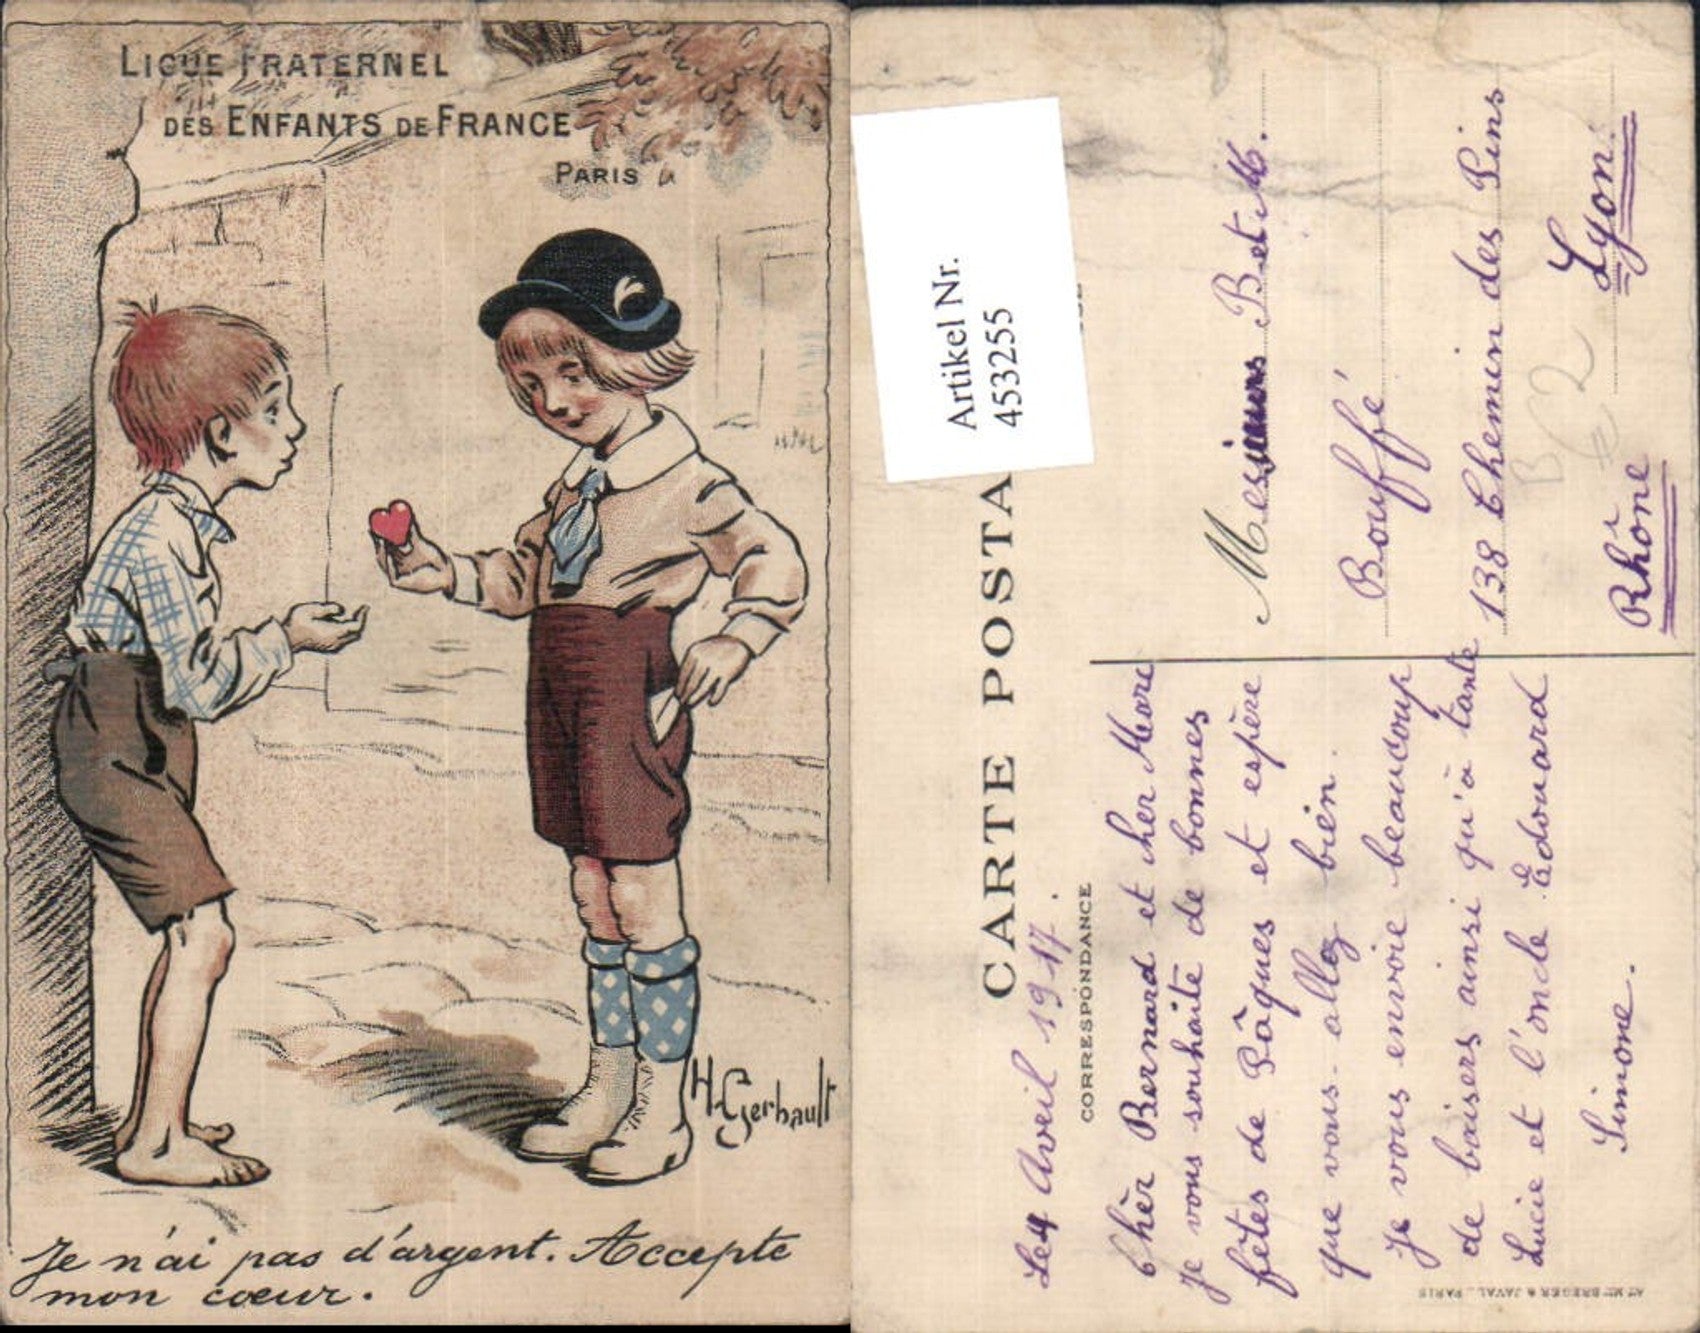 LIGUE FRATERNEL
DES ENFANTS DE FRANCE
PARIS
H. Gerbault
Je n'ai pas d'argent. Accepte
mon cœur.
Artikel Nr.
4533255
CARTE POSTA
CORRESPONDANCE
Le 4 Avril 1917.
Chèr Bernard et cher More
Je vous souhaite de bonnes
fêtes de Pâques et espère
que vous allez bien.
Je vous envoie beaucoup
de baisers ainsi qu'à tante
Lucie et l'oncle Edouard
Simone.
Messieurs B et M.
Bouffé
138 Chemin des Pins
Lyon
Rhône
B 2
Aᵗˢ Mᵗˢ BREGER & JAVAL _ PARIS